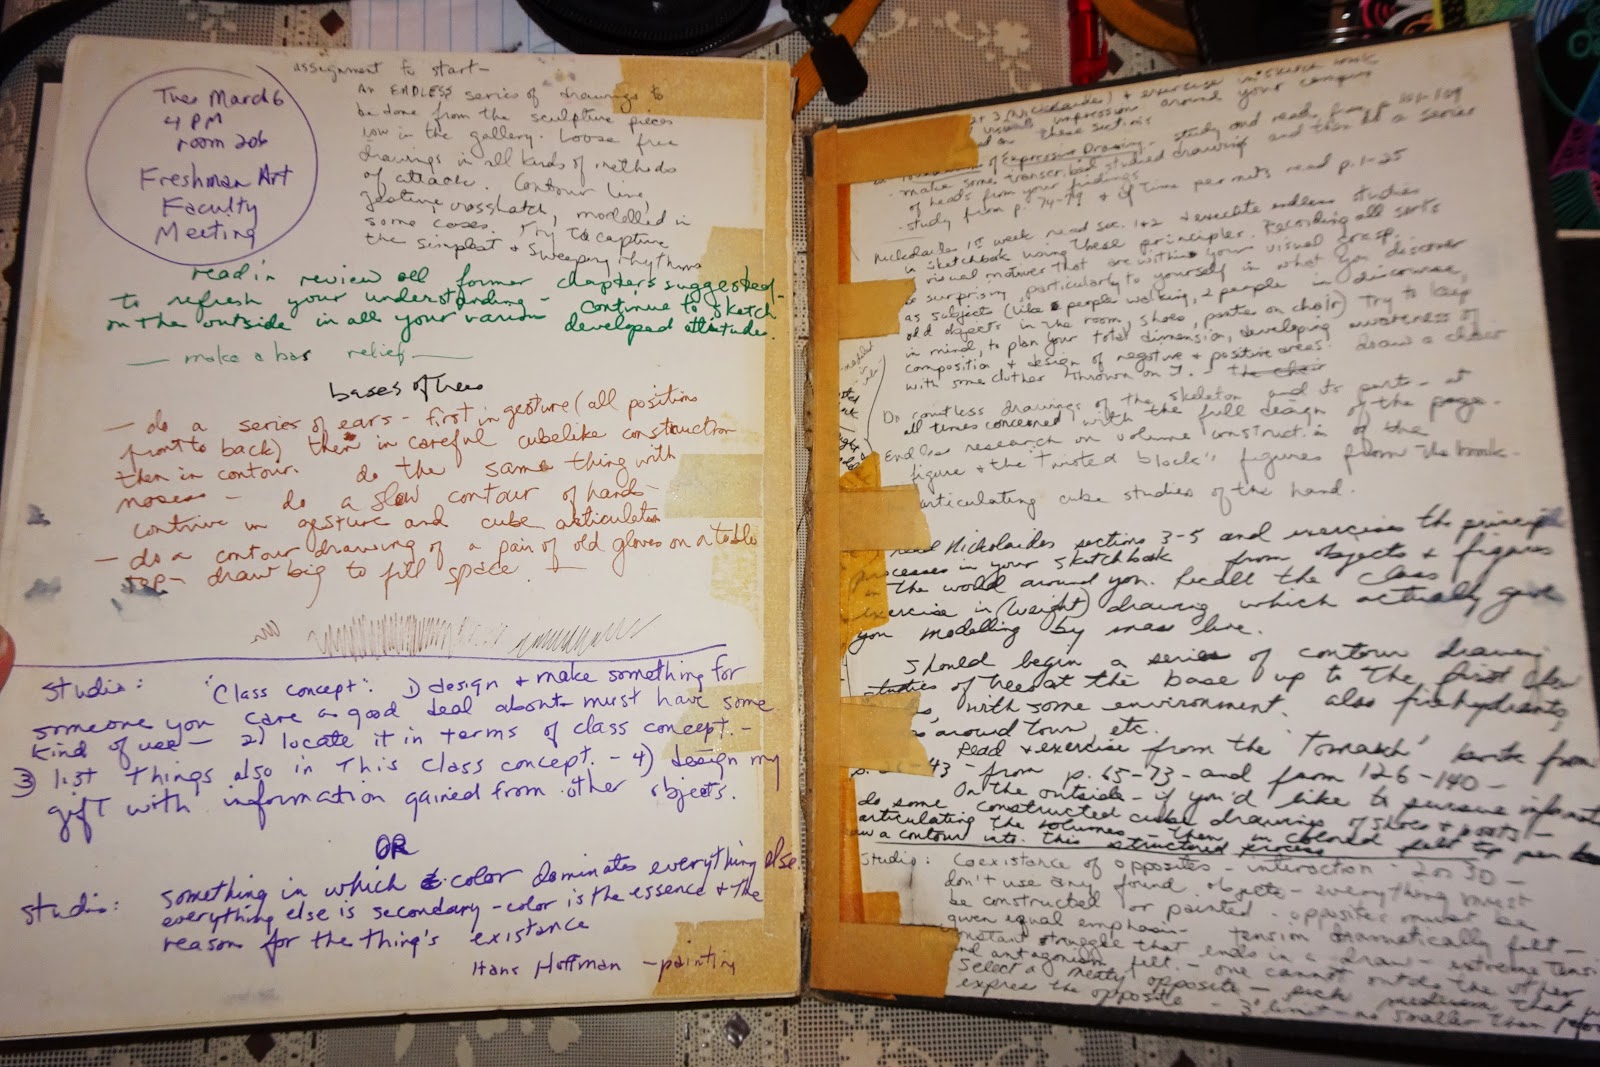 Tues March 6
4 PM
room 206
Freshman Art
Faculty
Meeting
assignment to start-
An ENDLESS series of drawings to
be done from the sculpture pieces
now in the gallery. Loose free
drawings in all kinds of methods
of attack. Contour line,
gesture, crosshatch, modelled in
some cases. Try to capture
the simplest & sweeping rhythms
read in review all former chapters suggested-
to refresh your understanding - Continue to sketch
on the outside in all your various developed attitudes.
- make a bas relief -
bases of trees
- do a series of ears - first in gesture (all positions
front to back) then in careful cubelike construction
then in contour. do the same thing with
noses - do a slow contour of hands-
contrive in gesture and cube articulation
- do a contour drawing of a pair of old gloves on a table
top - draw big to fill space. -
Studio: "Class concept". 1) design & make something for
someone you care a good deal about - must have some
kind of use - 2) locate it in terms of class concept. -
3) list things also in this class concept. - 4) design my
gift with information gained from other objects.
OR
Studio: Something in which color dominates everything else.
everything else is secondary - color is the essence & the
reason for the thing's existance
Hans Hoffman - painting
3 (Nickolaides) & exercise in sketch book
visual impressions around your campus
these sections
of Expressive Drawing - study and read from p. 109
- make some studied drawing and then do a series
of heads from your findings
- study from p. 74-79 & if time permits read p. 1-25
Nickolaides 1st week read sec. 1+2 & execute endless studies
in sketchbook using these principles. Recording all sorts
visual motives that are within your visual grasp.
surprising, particularly to yourself in what you discover
as subjects (like people walking, 2 people in discourse,
old objects in the room, shoes, pants on chair) Try to keep
in mind, to plan your total dimension, developing awareness of
composition & design of negative & positive areas. draw a chair
with some clothes thrown on it. - the chair
Do countless drawings of the skeleton and its parts - at
all times concerned with the full design of the page.
Endless research on volume construction of the
figure & the "twisted block" figures from the book -
articulating cube studies of the hand.
read Nickolaides section 3-5 and exercises the principle
processes in your sketchbook from objects & figures
in the world around you. Recall the class
exercise in (weight) drawing which actually gave
you modelling by mass line.
Should begin a series of contour drawing
studies of trees at the base up to the first
with some environment. also firehydrants
around town, etc.
Read & exercise from the "Tomash" book from
-43 - from p. 65-73 - and from 126-140 -
On the outside - if you'd like to pursue
do some constructed cube drawings of shoes & boots -
articulating the volumes - then in colored felt tip pen
draw a contour into this structured process
Studio: Coexistance of opposites - interaction - 2 or 3D -
don't use any found objects - everything must
be constructed or painted - opposites must be
given equal emphasis - tension dramatically felt -
constant struggle that ends in a draw - extreme
and antagonism felt. - one cannot outdo the other
select a meaty opposite - pick medium that
express the opposite - 3' limit - no smaller than